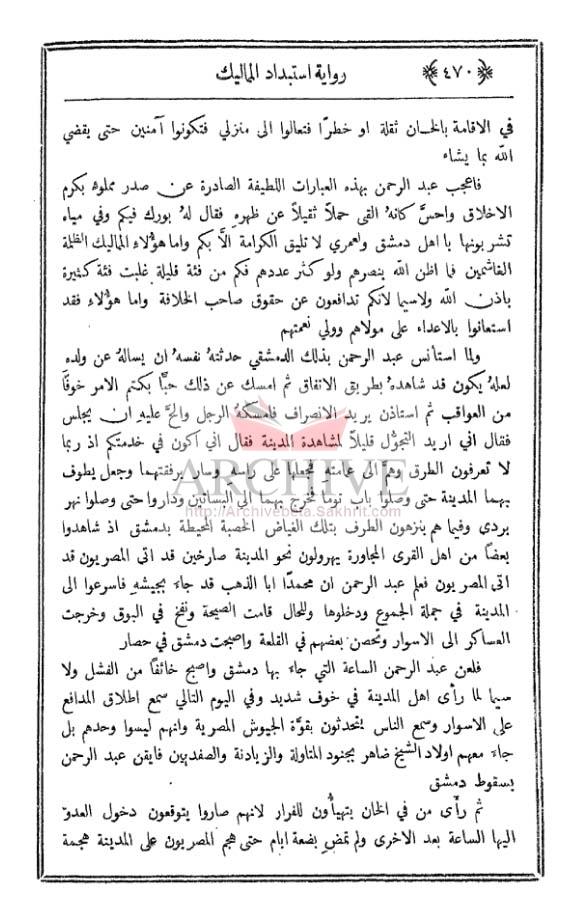 ﴿٤٧٠﴾ رواية استبداد المماليك
في الاقامة بالخان ثقلة او خطرًا فتعالوا الى منزلي فتكونوا آمنين حتى يقضي
الله بما يشاء
فاعجب عبد الرحمن بهذه العبارات اللطيفة الصادرة عن صدر مملوء بكرم
الاخلاق واحسَّ كانهُ القى حملاً ثقيلاً عن ظهرهِ فقال لهُ بورك فيكم وفي مياه
تشربونها يا اهل دمشق ولعمري لا تليق الكرامة الاَّ بكم واما هؤلاء المماليك الظلمة
الغاشمين فما اظن الله ينصرهم ولو كثر عددهم فكم من فئة قليلة غلبت فئة كثيرة
باذن الله ولاسيما لانكم تدافعون عن حقوق صاحب الخلافة واما هؤلاء فقد
استعانوا بالاعداء على مولاهم وولي نعمتهم
ولما استأنس عبد الرحمن بذلك الدمشقي حدثتهُ نفسهُ ان يسالهُ عن ولده
لعلهُ يكون قد شاهدهُ بطريق الاتفاق ثم امسك عن ذلك حبًّا بكتم الامر خوفًا
من العواقب ثم استاذن يريد الانصراف فامسكهُ الرجل والحَّ عليهِ ان يجلس
فقال اني اريد التجوُّل قليلاً لمشاهدة المدينة فقال اني أكون في خدمتكم اذ ربما
لا تعرفون الطرق وهمَّ الى عمامته فجعلها على راسه وسار برفقتهما وجعل يطوف
بهما المدينة حتى وصلوا باب توما فخرج بهما الى البساتين وداروا حتى وصلوا نهر
بردى وفيما هم ينزهون الطرف بتلك الغياض الخصبة المحيطة بدمشق اذ شاهدوا
بعضًا من اهل القرى المجاورة يهرولون نحو المدينة صارخين قد اتى المصريون قد
اتى المصريون فعلم عبد الرحمن ان محمدًا ابا الذهب قد جاء بجيشهِ فاسرعوا الى
المدينة في جملة الجموع ودخلوها وللحال قامت الصيحة ونفخ في البوق وخرجت
العساكر الى الاسوار وتحصن بعضهم في القلعة واصبحت دمشق في حصار
فلعن عبد الرحمن الساعة التي جاء بها دمشق واصبح خائفًا من الفشل ولا
سيما لما رأى اهل المدينة في خوف شديد وفي اليوم التالي سمع اطلاق المدافع
على الاسوار وسمع الناس يتحدثون بقوَّة الجيوش المصرية وانهم ليسوا وحدهم بل
جاء معهم اولاد الشيخ ضاهر بجنود المتاولة والزيادنة والصفديين فايقن عبد الرحمن
بسقوط دمشق
ثم رأى من في الخان يتهيأُون للفرار لانهم صاروا يتوقعون دخول العدو
اليها الساعة بعد الاخرى ولم تمضِ بضعة ايام حتى هجم المصريون على المدينة هجمة
ARCHIVE
http://Archivebeta.Sakhrit.com